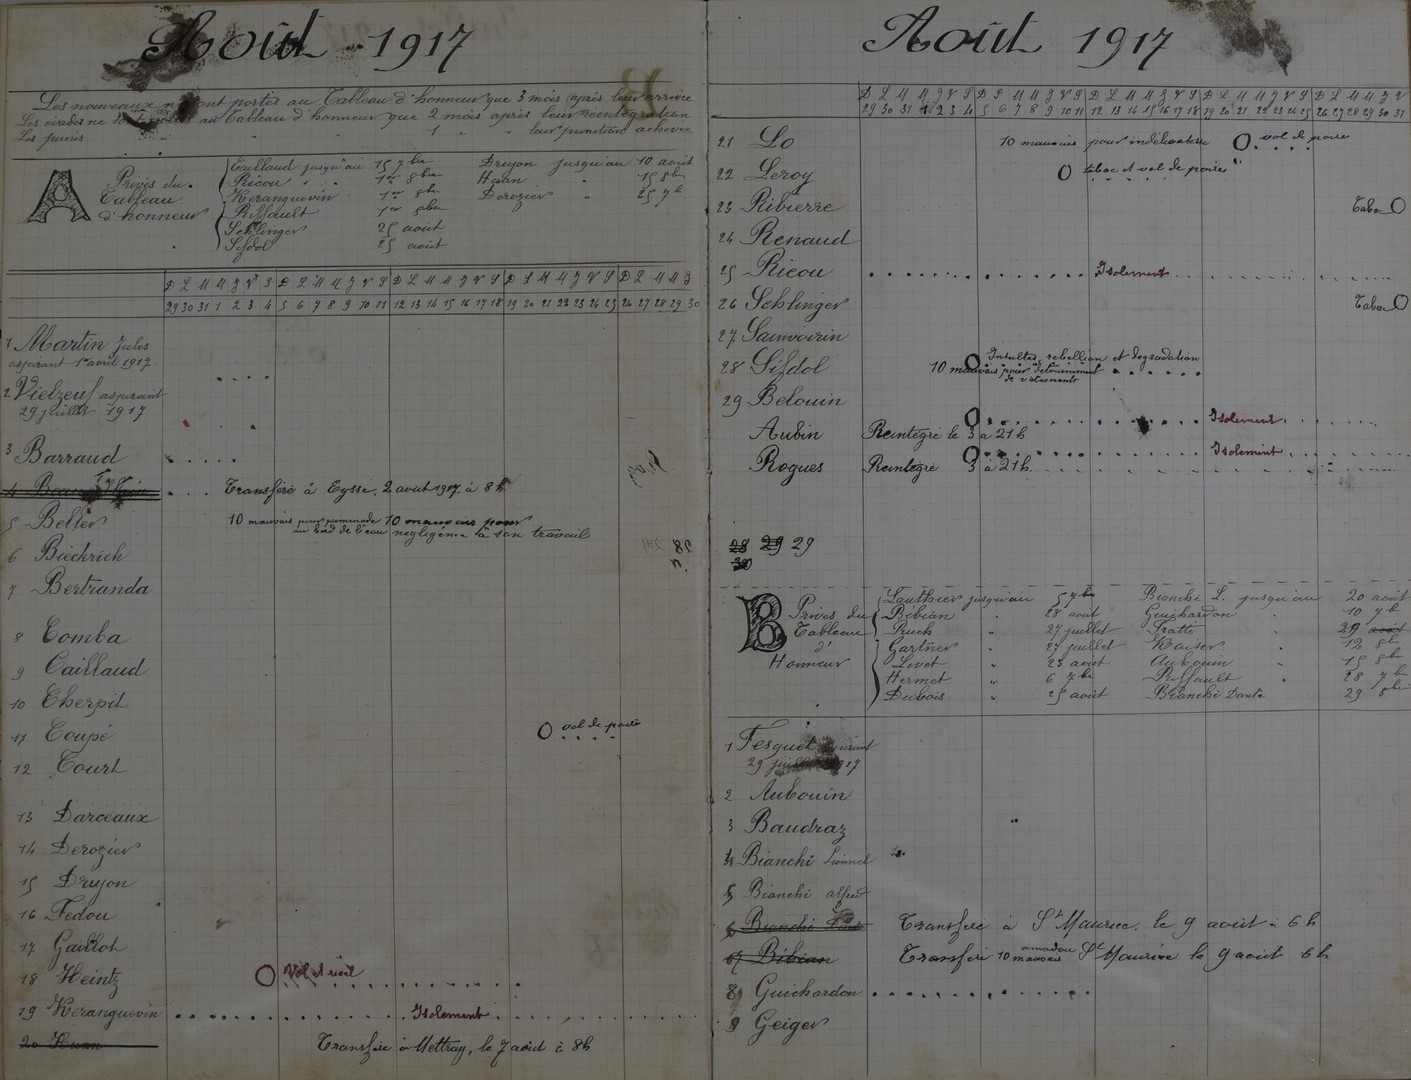 Août 1917
Les nouveaux ne sont portés au Tableau d'honneur que 3 mois après leur arrivée
Les évadés ne sont portés au Tableau d'honneur que 2 mois après leur réintégration
Les punis " " " 1 " " leur punition achevée
A Privés du Tableau d'honneur
Caillaud jusqu'au 15 7bre Druyon jusqu'au 10 août
Ricou " 1er 8bre Huan " 15 8bre
Keranguevin 1er 8bre Derozier " 25 7b
Riffault 1er 8bre
Schlinger 25 août
Sifdol 25 août
D L M M J V S D L M M J V S D L M M J V S D L M M J V S D L M M J
29 30 31 1 2 3 4 5 6 7 8 9 10 11 12 13 14 15 16 17 18 19 20 21 22 23 24 25 26 27 28 29 30
1 Martin Jules
aspirant 1er avril 1917
2 Vielzeuf aspirant
29 juillet 1917
3 Barraud
4 Transféré à Eysse, 2 août 1917 à 8h
5 Beller 10 mauvais pour promenade au bord de l'eau 10 mauvais pour négligence à son travail
6 Bieckrich
7 Bertranda
8 Comba
9 Caillaud
10 Cherpit
11 Coupé vol de poire
12 Court
13 Darceaux
14 Derozier
15 Druyon
16 Fedou
17 Gaillot
18 Heintz
19 Keranguevin Isolement
20 Huan Transféré à Mettray, le 7 août à 8h
Août 1917
D L M M J V S D L M M J V S D L M M J V S D L M M J V S D L M M J V
29 30 31 1 2 3 4 5 6 7 8 9 10 11 12 13 14 15 16 17 18 19 20 21 22 23 24 25 26 27 28 29 30 31
21 Lo 10 mauvais pour indélicatesse vol de poire
22 Leroy tabac et vol de poires
23 Ribierre Tabac
24 Renaud
25 Ricou Isolement
26 Schlinger Tabac
27 Sauvoirin
28 Sifdol 10 mauvais pour détournement de vêtements Insultes, rébellion et dégradation
29 Belouin
Aubin Réintégré le 3 à 21h Isolement
Rogues Réintégré 3 à 21h Isolement
28 29 29
30
B Privés du Tableau d'Honneur
Lauthier jusqu'au 5 7bre Bianchi L. jusqu'au 20 août
Bibian " 28 août Guichardon " 10 7b
Puch " 27 juillet Fratti " 29 août
Gartner " 27 juillet Kaiser " 12 8b
Livet " 25 août Aubouin " 15 8b
Hermet " 6 7bre Riffault " 28 7b
Dubois " 25 août Bianchi Dante 29 8bre
1 Fesquet aspirant
29 juillet 1917
2 Aubouin
3 Baudraz
4 Bianchi Lionnel
5 Bianchi alfred
6 Bianchi Dante Transféré à St Maurice, le 9 août à 6h
7 Bibian Transféré 10 mauvais St Maurice le 9 août 6h
8 Guichardon
9 Geiger